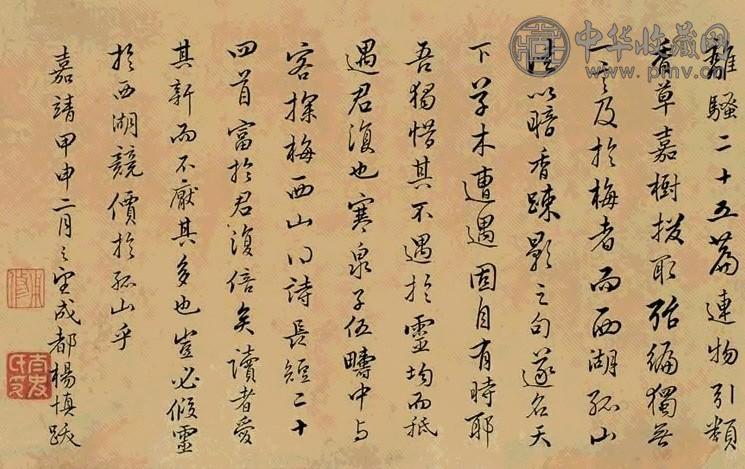 離騷二十五篇連物引類
香草嘉樹拔取殆編獨無
一言及於梅者而西湖孤山
以暗香疎影之句遂名天
下草木遭遇固自有時耶
吾獨惜其不遇於靈均而秪
遇君復也寒泉子伍疇中与
客探梅西山得詩長短二十
四首富於君復倍矣讀者愛
其新而不厭其多也豈必假靈
於西湖競價於孤山乎
嘉靖甲申二月之望成都楊慎跋
用修
中华收藏网
www.pmv.cn